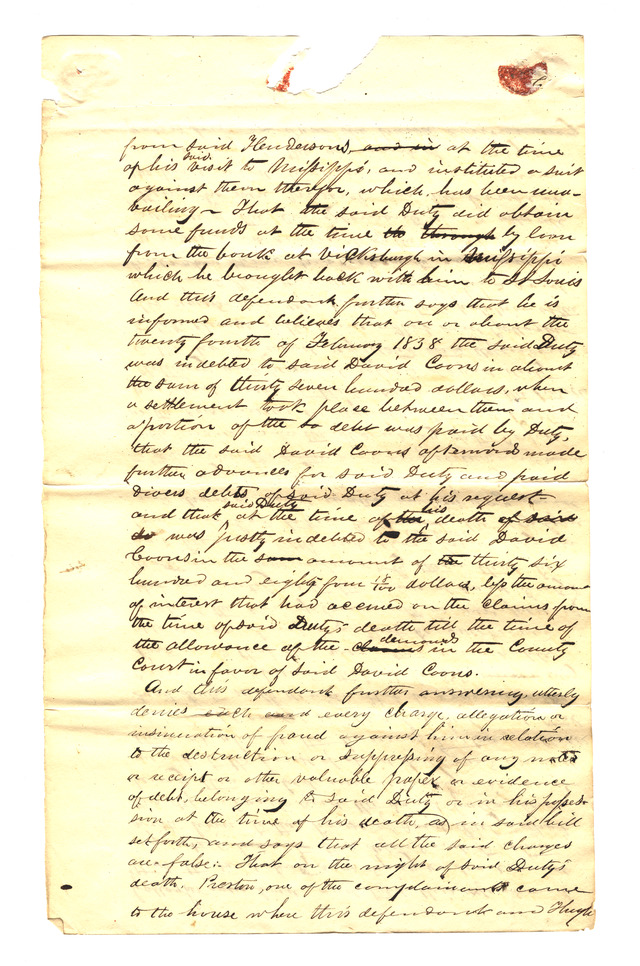 from said Hendersons, and in at the time
of his said visit to Missippi, and instituted a suit
against them thereon, which, has been una-
vailing - That the said Duty did obtain
some funds at the time the through by loan
from the bank at Vicksburgh in Missippi
which he brought back with him to St Louis
And this defendant further says that he is
informed and believes that on or about the
twenty fourth of February 1838 the said Duty
was indebted to said David Coons in about
the sum of thirty seven hundred dollars, when
a settlement took place between them and
a portion of the debt was paid by Duty,
that the said David Coons afterward made
further advances for said Duty and paid
divers debts of said Duty at his request -
and that said Duty at the time of the his death of said
do was justly indebted to the said David
Coons in the sum amount of the thirty six
hundred and eighty four 18/100 dollars, less the amount
of interest that had accrued on the claims from
the time of said Duty's death till the time of
the allowance of the claims demands in the County
Court in favor of said David Coons.
And this defendant further answering, utterly
denies each and every charge, allegation or
insinuation of fraud against him in relation
to the destruction or suppressing of any notes
or receipt or other valuable paper or evidence
of debt, belonging to said Duty or in his posses-
sion at the time of his death, as in said bill
set forth, and says that all the said charges
are false: That on the night of said Duty's
death, Preston, one of the complainants came
to the house where this defendant and Hugh